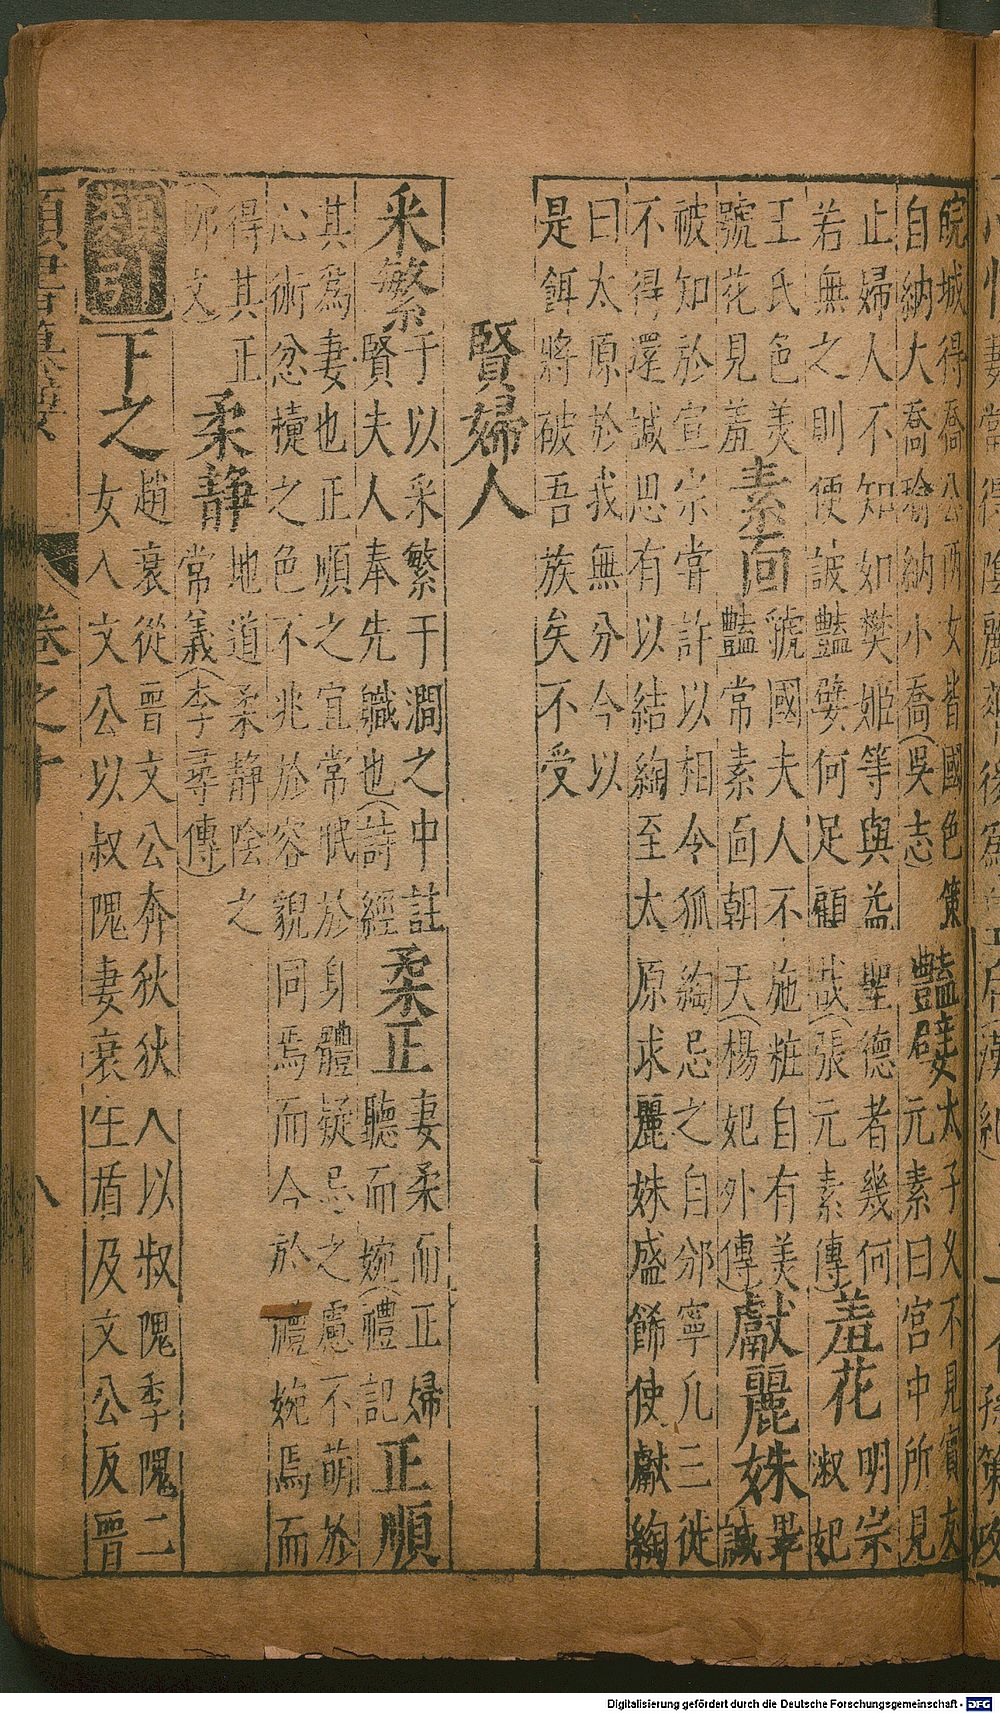 皖城得喬公兩女皆國色策
自納大喬瑜納小喬(吳志)
豔嬖
太子久不見賓友
元素曰宮中所見
止婦人不知如樊姬等與益聖德者幾何
若無之則便詖豔嬖何足顧哉(張元素傳)
羞花
明宗
淑妃
王氏色美
號花見羞
素面
虢國夫人不施粧自有美
豔常素面朝天(楊妃外傳)
獻麗姝
畢
諴
被知於宣宗嘗許以相令狐綯忌之自邠寧凡三徙
不得還諴思有以結綯至太原求麗姝盛餙使獻綯
曰太原於我無分今以
是餌將破吾族矣不受
賢婦人
采繁
于以采繁于澗之中註
賢夫人奉先職也(詩經)
柔正
妻柔而正婦
聽而婉(禮記)
正順
其爲妻也正順之宜常眠於身體疑忌之慮不萌於
心術忿懥之色不兆於容貌同焉而今於禮婉焉而
得其正
(郊文)
柔静
地道柔静陰之
常義(李尋傳)
類引
下之
趙衰從晋文公奔狄狄人以叔隗季隗二
女入文公以叔隗妻衰生盾及文公反晋
類書纂要 卷之十 八
Digitalisierung gefördert durch die Deutsche Forschungsgemeinschaft - DFG